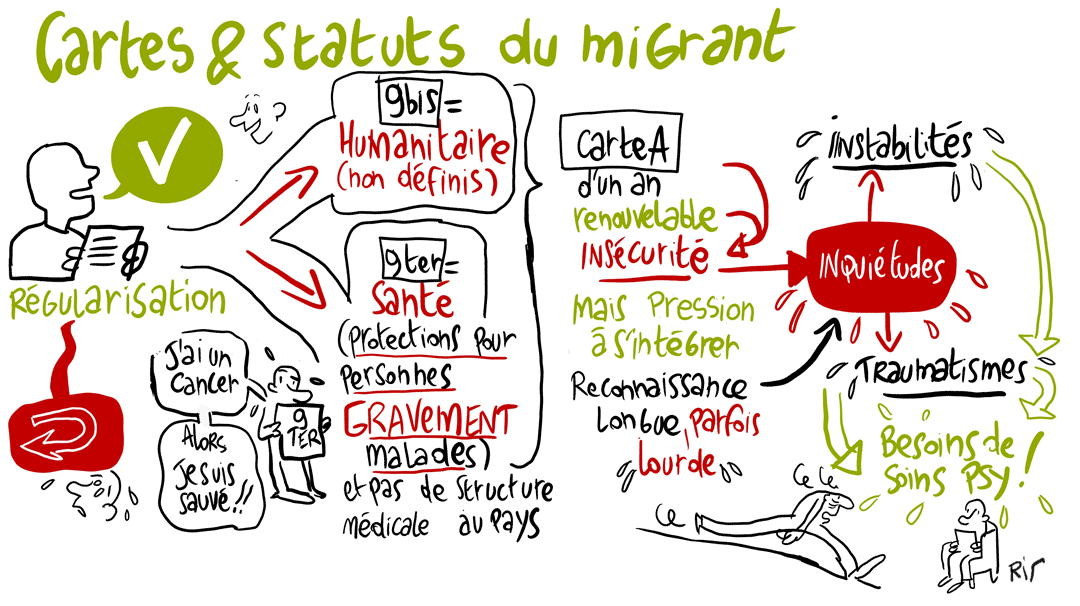 Cartes & statuts du migrant
9bis =
Humanitaire
(non définis)
9ter =
Santé
(protections pour
personnes
GRAVEMENT
malades)
et pas de structure
médicale au pays
Régularisation
J'ai un
cancer
Alors
je suis
sauvé !!
9
TER
carte A
d'un an
renouvelable
Insécurité
Mais pression
à s'intégrer
Reconnaissance
longue, parfois
lourde
Instabilités
Inquiétudes
Traumatismes
Besoins de
soins psy !
Ris